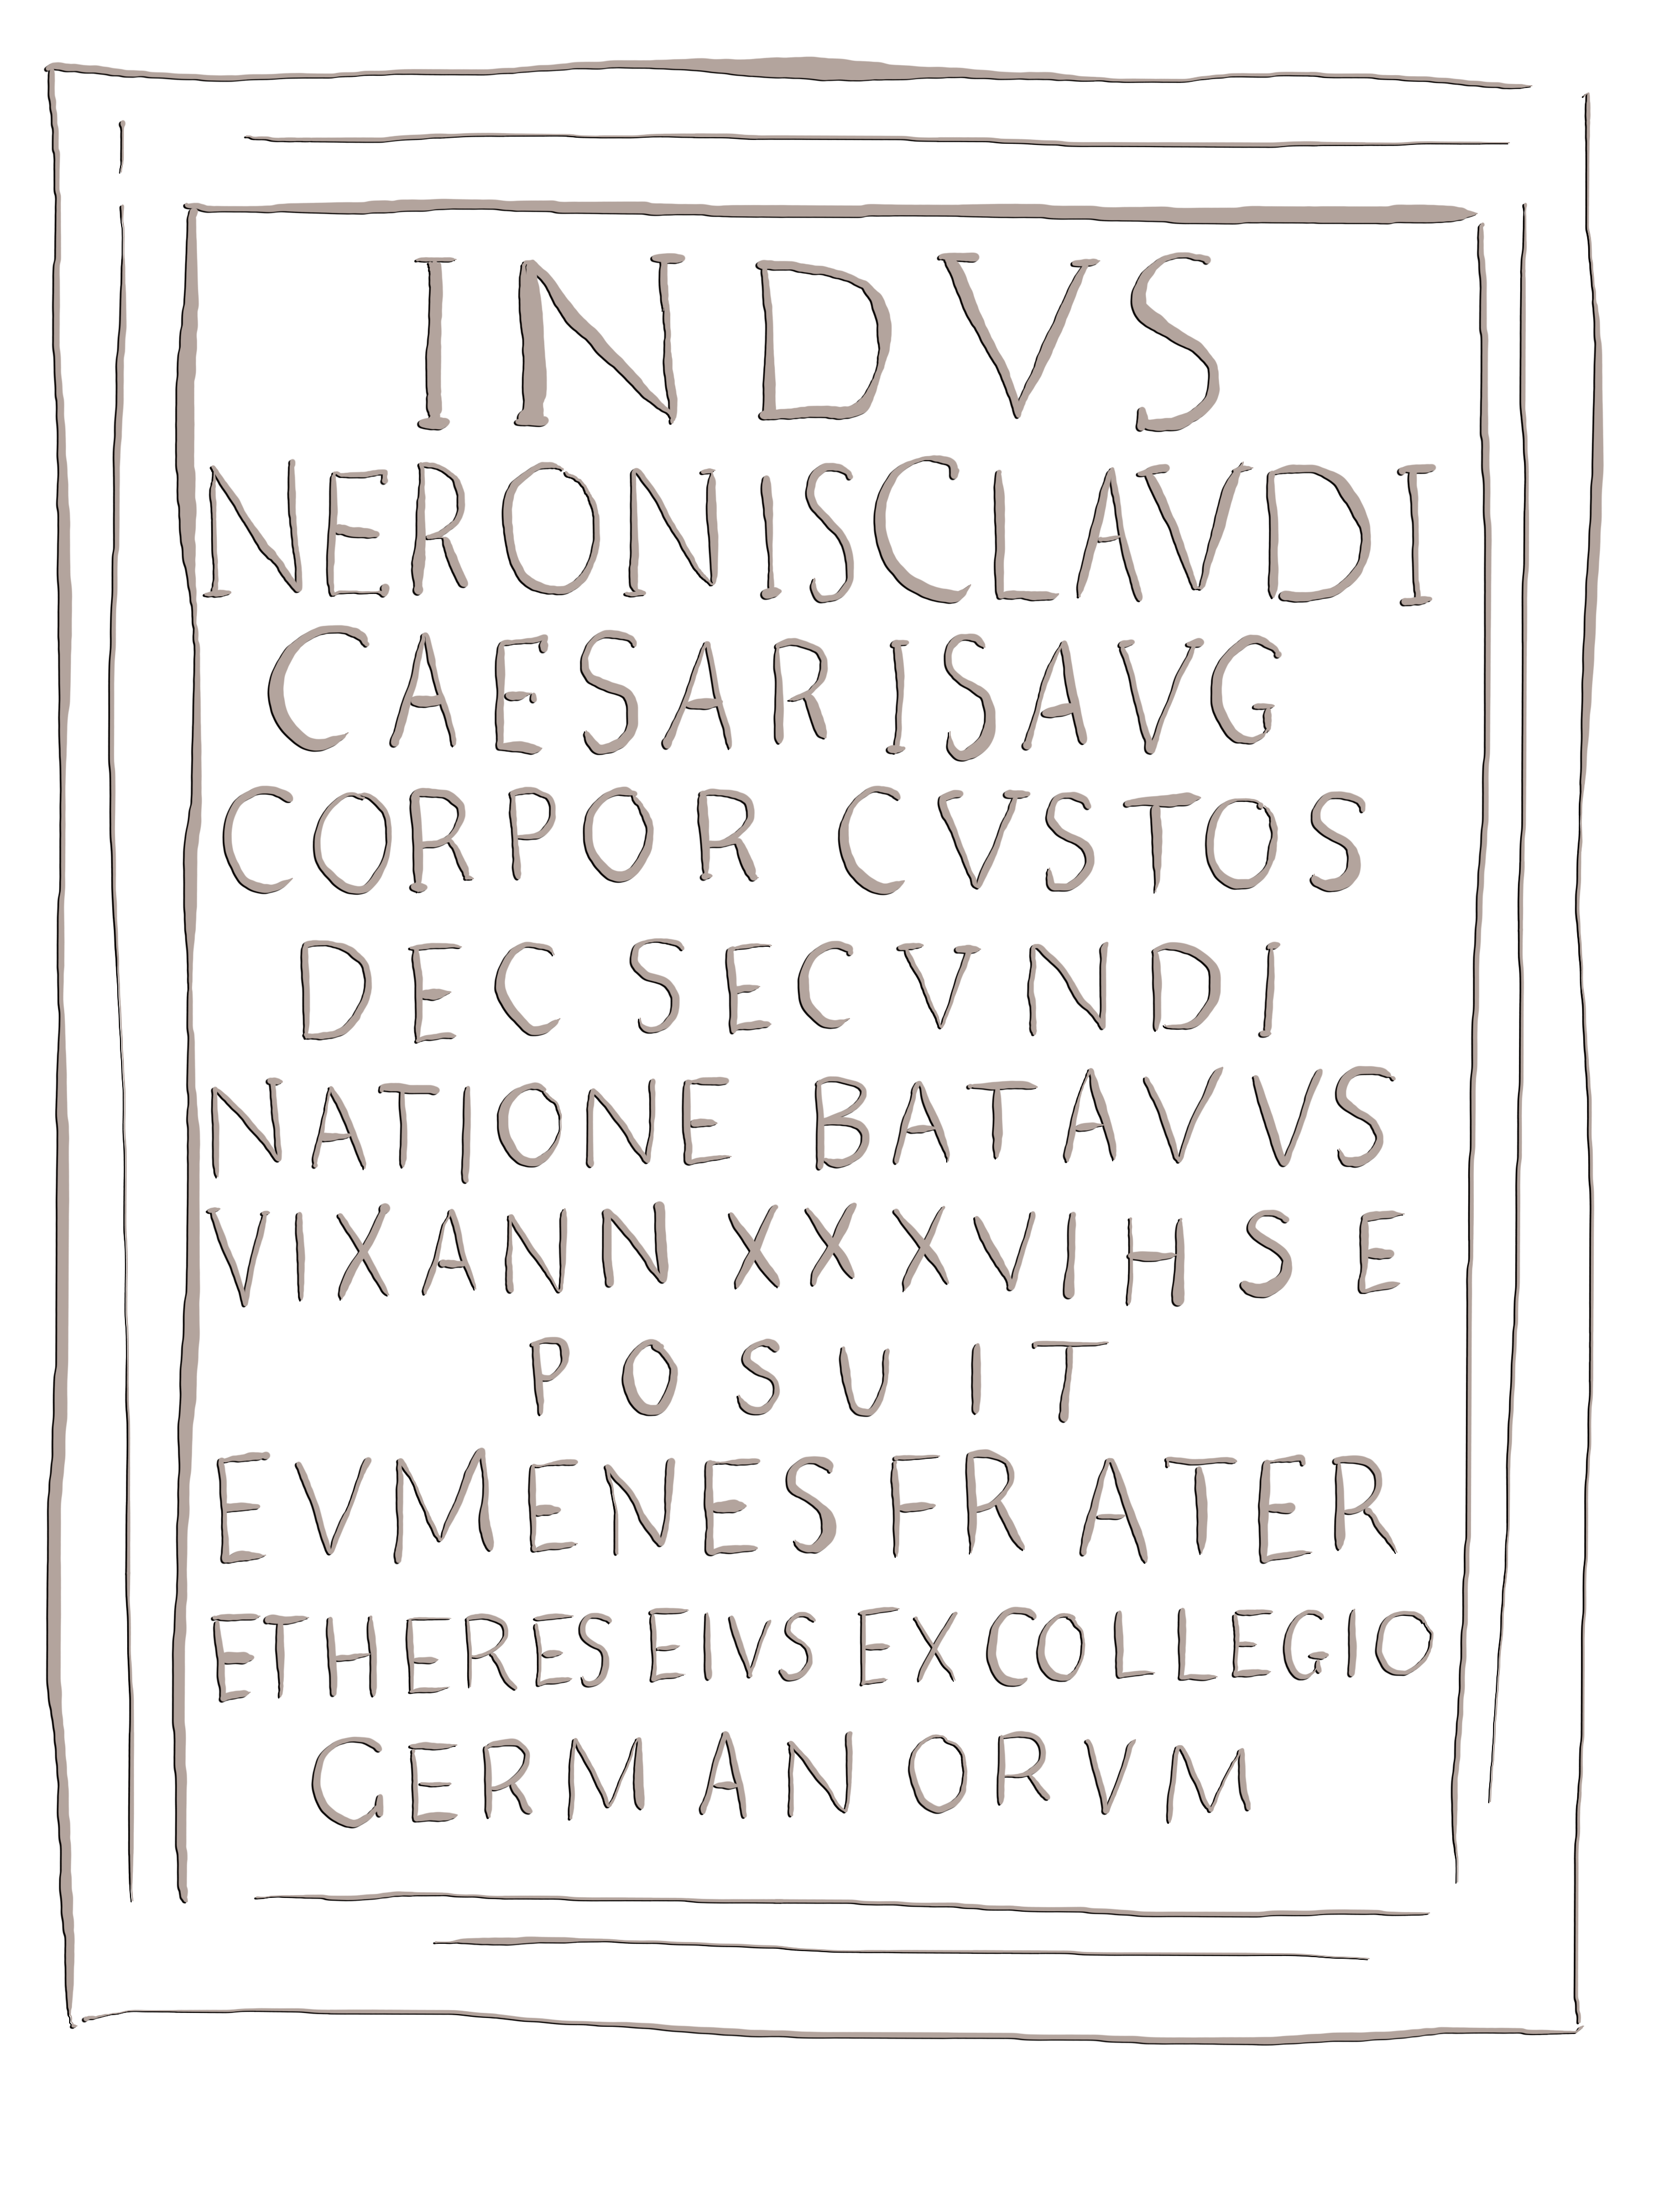 INDVS
NERONISCLAVDI
CAESARISAVG
CORPOR CVSTOS
DEC SECVNDI
NATIONE BATAVVS
VIXANN XXXVIH S E
POSUIT
EVMENES FRATER
ETHERES EIVS EXCOLLEGIO
GERMANORVM